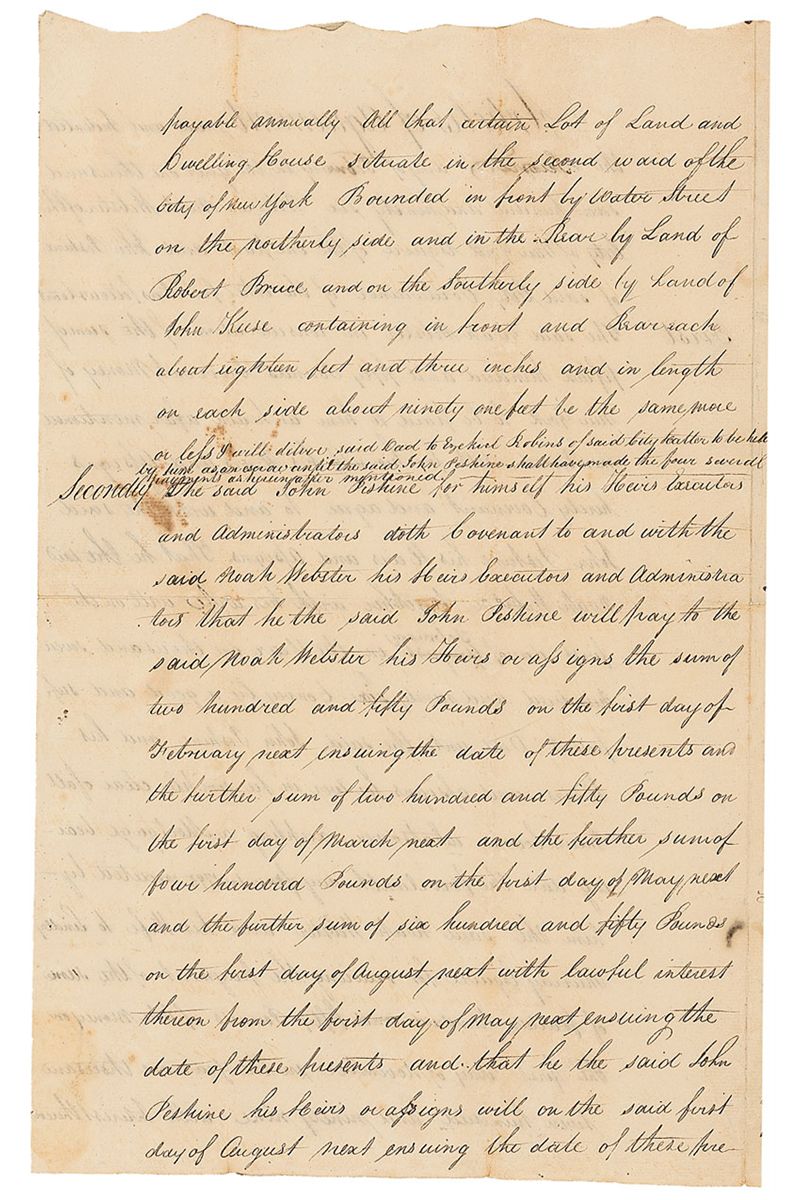 payable annually All that certain Lot of Land and
Dwelling House situate in the second ward of the
City of New York Bounded in front by Water Street
on the northerly side and in the Rear by Land of
Robert Bruce and on the Southerly side by Land of
John Kuse containing in front and Rear each
about eighteen feet and three inches and in length
on each side about ninety one feet be the same more
or less I will diliver said Dad to Ezekiel Robins of said City Hatter to be held
by him as an escrow until the said John Peshine shall have made the four severall
payments as hereinafter mentioned.
Secondly The said John Peshine for himself his Heirs Executors
and Administrators doth Covenant to and with the
said Noah Webster his Heirs Executors and Administra
tors that he the said John Peshine will pay to the
said Noah Webster his Heirs or assigns the sum of
two hundred and fifty Pounds on the first day of
February next ensuing the date of these presents and
the further sum of two hundred and fifty Pounds on
the first day of March next and the further sum of
four hundred Pounds on the first day of May next
and the further sum of six hundred and fifty Pounds
on the first day of August next with lawful interest
thereon from the first day of May next ensuing the
date of these presents and that he the said John
Peshine his Heirs or assigns will on the said first
day of August next ensuing the date of these pre